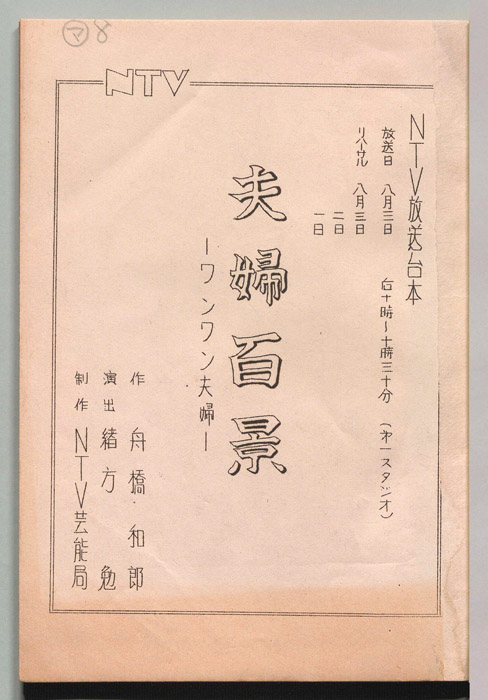 マ 8
NTV
NTV放送台本
放送日 八月三日 后十時~十時三十分 (オ一スタジオ)
リハーサル 八月三日
二日
一日
夫婦百景
ーワンワン夫婦ー
作 舟橋・和郎
演出 緒方 勉
制作 NTV芸能局